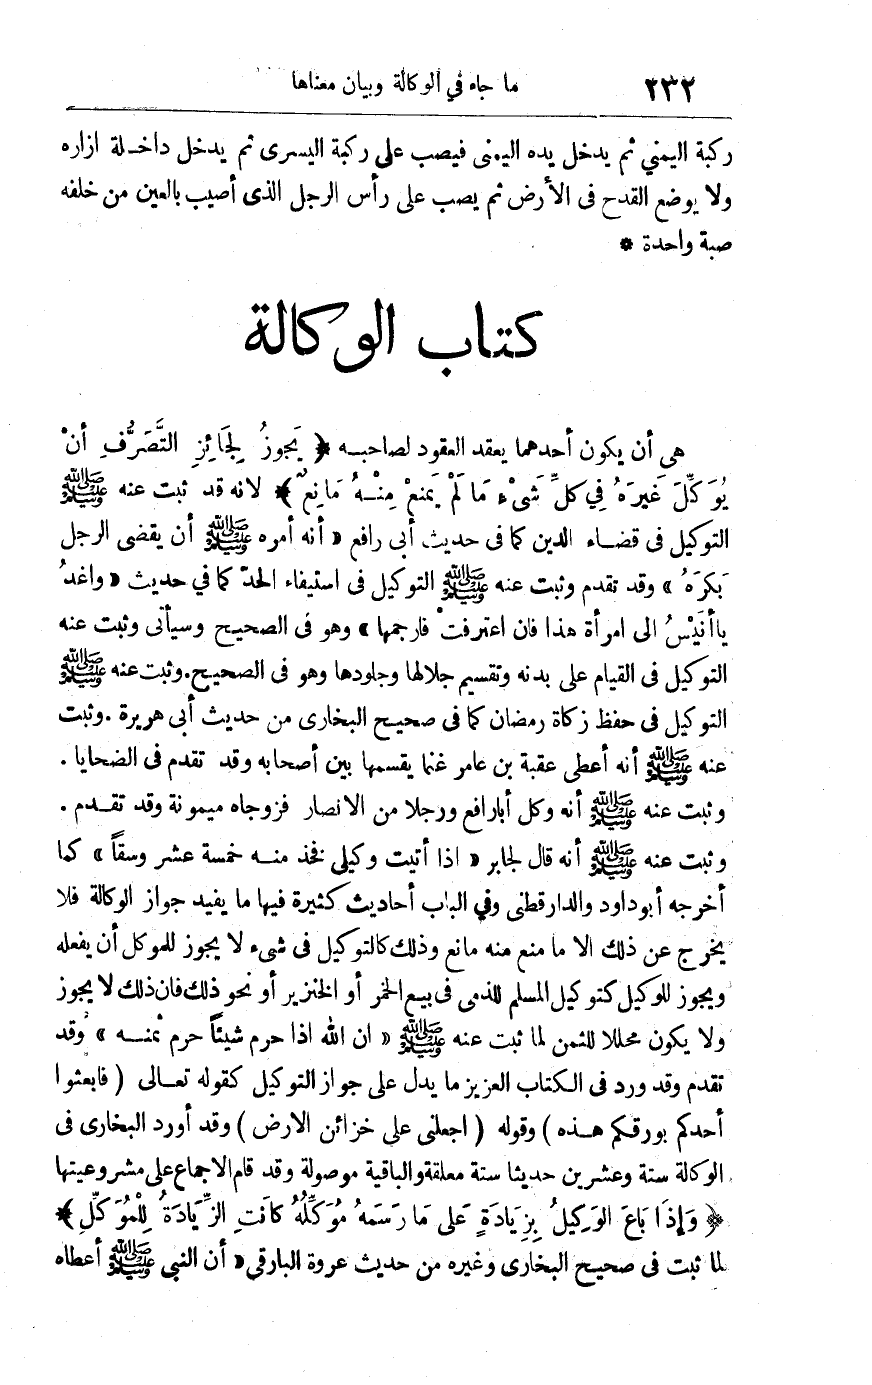 ٢٣٢ ما جاء في الوكالة وبيان معناها
ركبة اليمني ثم يدخل يده اليمنى فيصب على ركبة اليسرى ثم يدخل داخلة ازاره
ولا يوضع القدح فى الأرض ثم يصب على رأس الرجل الذى أصيب بالعين من خلفه
صبة واحدة *
كتاب الوكالة
هي أن يكون أحدهما يعقد العقود لصاحبه ﴿ يَجوزُ لِجَائِزِ التَّصَرُّفِ أنْ
يُوَكِّلَ غَيرَهُ فِي كلِّ شَىْءٍ مَا لَمْ يَمنعْ مِنْهُ مَانِعٌ ﴾ لانه قد ثبت عنه ﷺ
التوكيل فى قضاء الدين كما فى حديث أبى رافع « أنه أمره ﷺ أن يقضى الرجل
بَكرَهُ » وقد تقدم وثبت عنه ﷺ التوكيل فى استيفاء الحدّ كما في حديث « واغدُ
ياأنَيْسُ الى امرأة هذا فان اعترفتْ فارجمها » وهو فى الصحيح وسيأتى وثبت عنه
التوكيل فى القيام على بدنه وتقسيم جلالها وجلودها وهو فى الصحيح. وثبت عنه ﷺ
التوكيل فى حفظ زكاة رمضان كما فى صحيح البخارى من حديث أبى هريرة . وثبت
عنه ﷺ أنه أعطى عقبة بن عامر غنما يقسمها بين أصحابه وقد تقدم فى الضحايا .
وثبت عنه ﷺ أنه وكل أبارافع ورجلا من الانصار فزوجاه ميمونة وقد تقدم .
وثبت عنه ﷺ أنه قال لجابر « اذا أتيت وكيلى فخذ منه خمسة عشر وسقاً » كما
أخرجه أبوداود والدارقطنى وفي الباب أحاديث كثيرة فيها ما يفيد جواز الوكالة فلا
يخرج عن ذلك الا ما منع منه مانع وذلك كالتوكيل فى شىء لا يجوز للموكل أن يفعله
ويجوز للوكيل كتوكيل المسلم للذمى فى بيع الخمر أو الخنزير أو نحو ذلك فان ذلك لا يجوز
ولا يكون محللا للثمن لما ثبت عنه ﷺ « ان الله اذا حرم شيئاً حرم ثمنه » وقد
تقدم وقد ورد فى الكتاب العزيز ما يدل على جواز التوكيل كقوله تعالى ( فابعثوا
أحدكم بورقكم هذه ) وقوله ( اجعلنى على خزائن الارض ) وقد أورد البخارى فى
الوكالة ستة وعشرين حديثا ستة معلقة والباقية موصولة وقد قام الاجماع على مشروعيتها
﴿ وَإِذَا بَاعَ الوَكِيلُ بِزِيَادَةٍ عَلى مَا رَسَمَهُ مُوَكِّلُهُ كانَتِ الزِّيَادَةُ لِلْمُوَكِّلِ ﴾
لما ثبت فى صحيح البخارى وغيره من حديث عروة البارقي « أن النبي ﷺ أعطاه